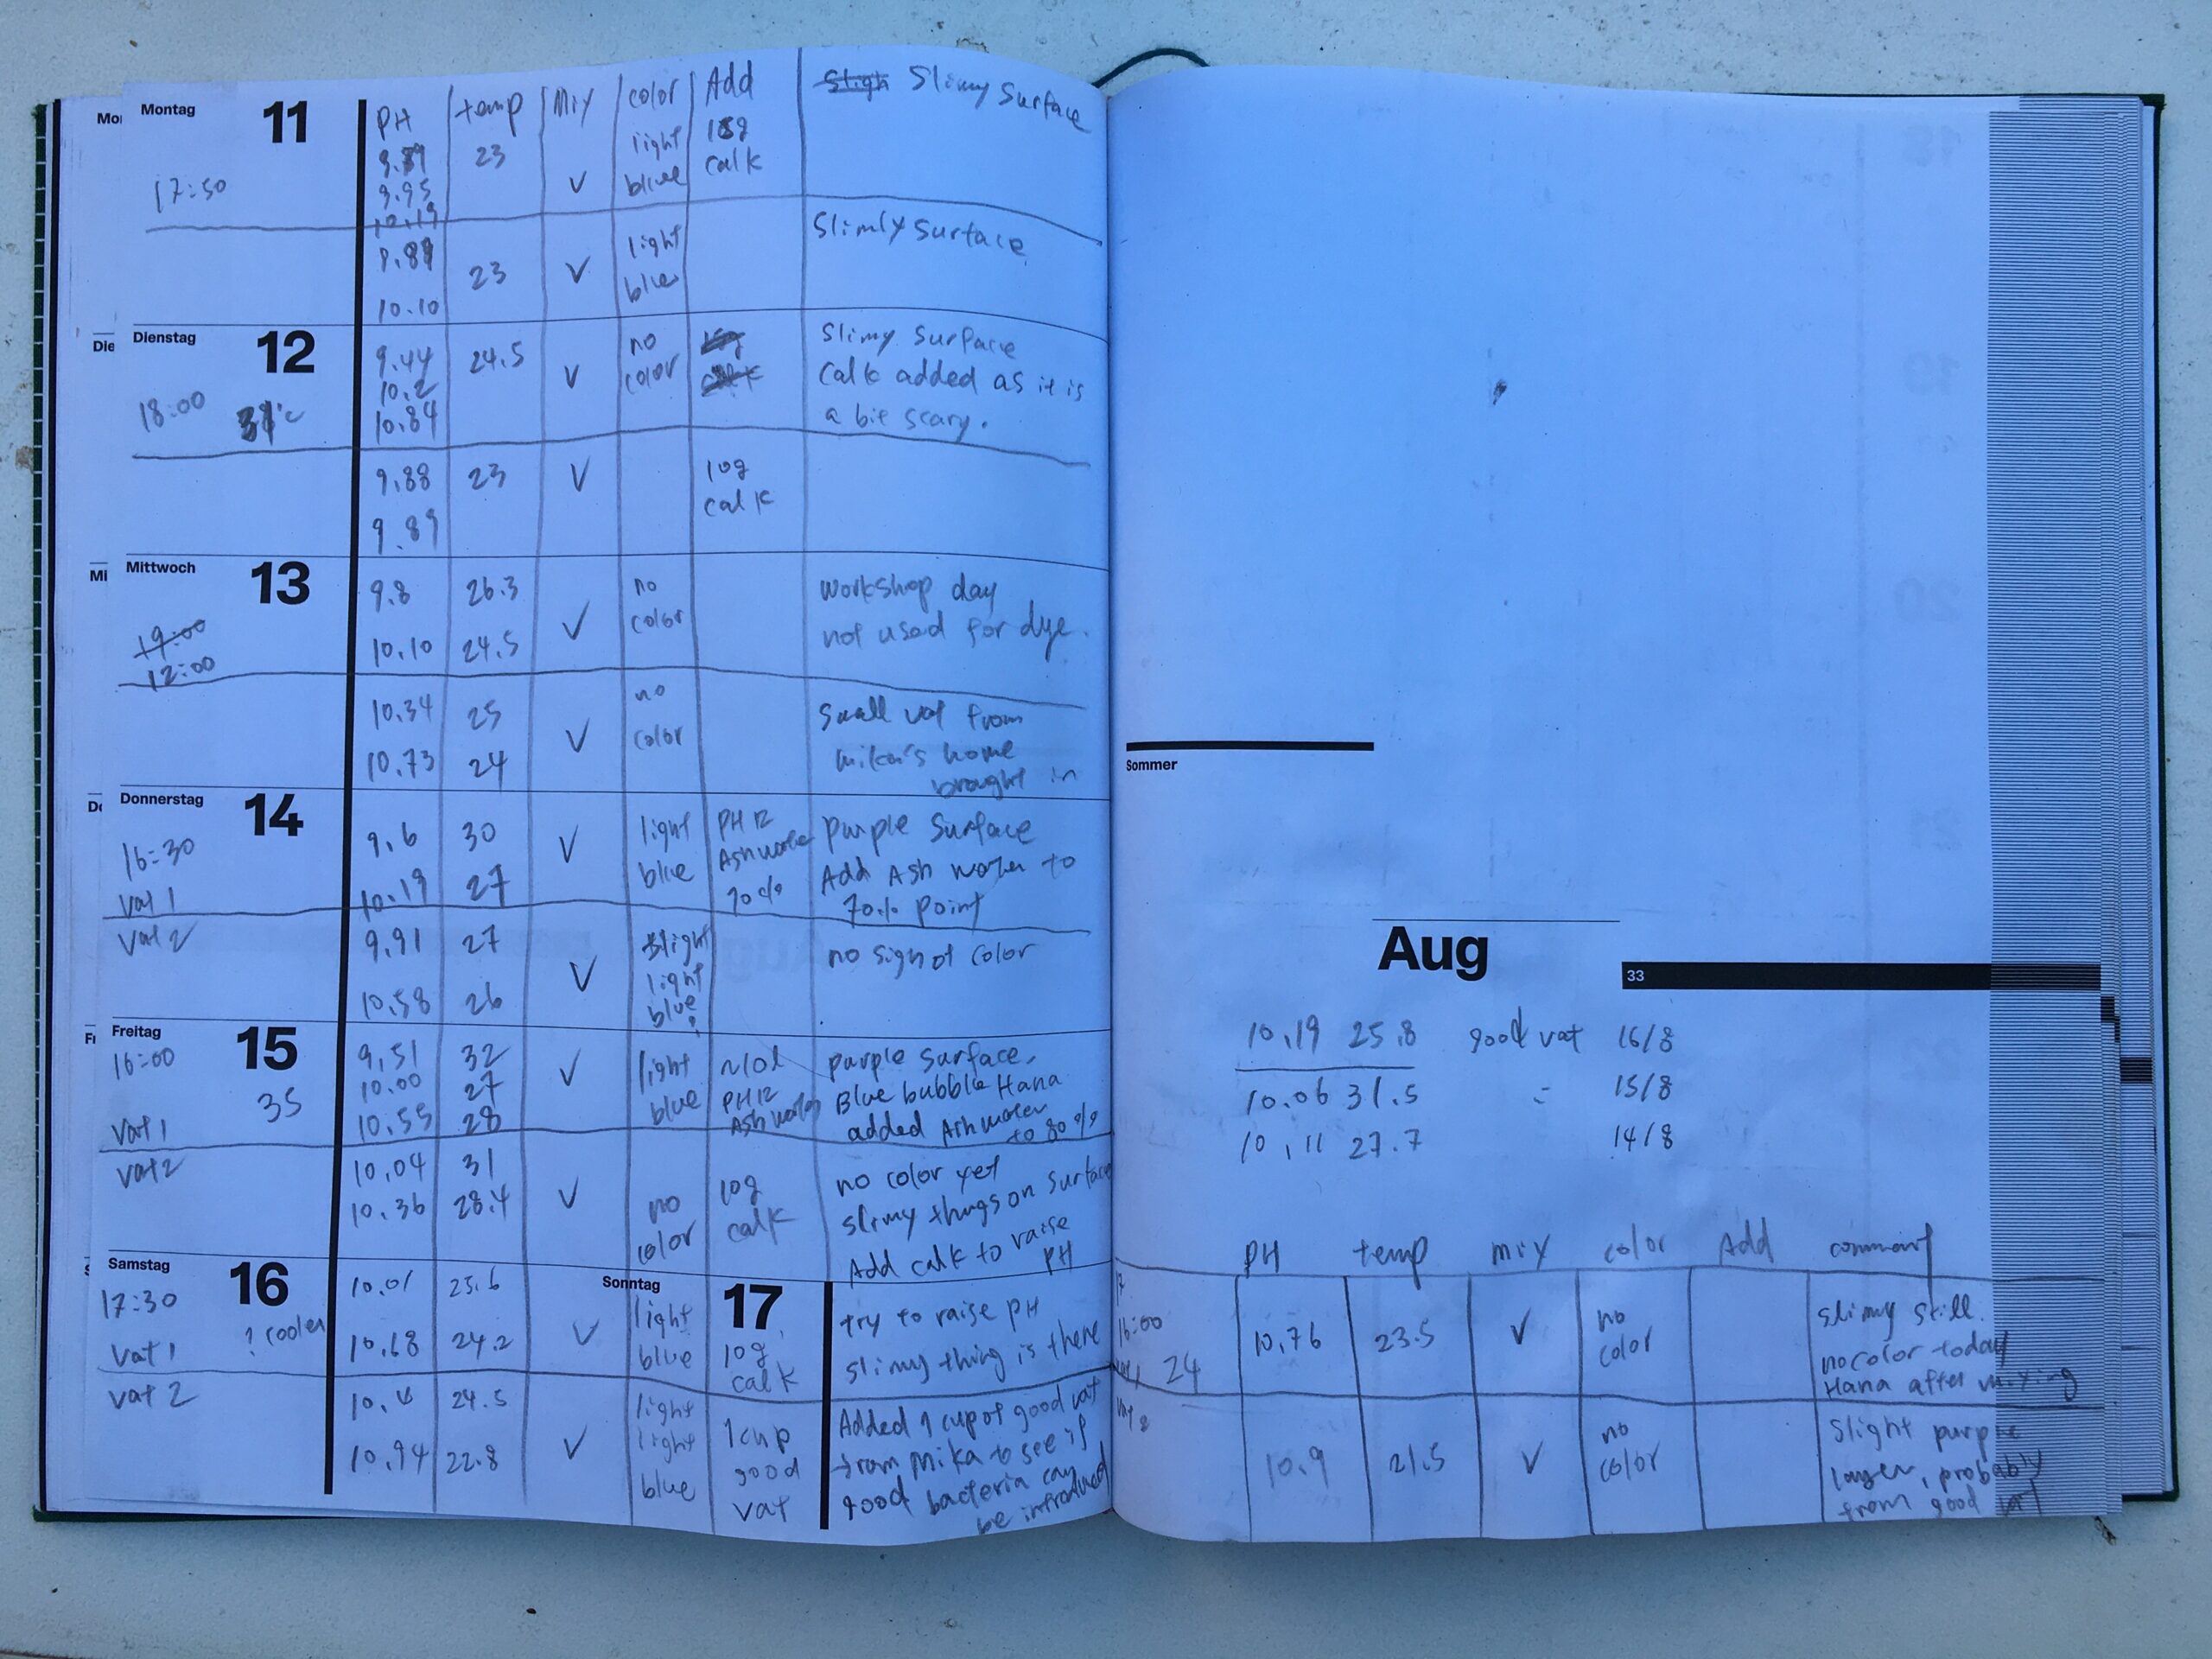 PH temp Mix color Add
Slimy Surface
Montag 11
17:50
9.95
10.19
23
V
light
blue
calk
10.10
23
V
light
blue
Slimly Surface
Dienstag 12
18:00
9.44
10.2
10.84
24.5
V
no
color
Slimy Surface
Calk added as it is
a bit scary.
9.88
9.89
23
V
10g
calk
Mittwoch 13
19:00
12:00
9.8 26.3
10.10 24.5
V
no
color
workshop day
not used for dye.
10.34 25
10.73 24
V
no
color
Small vat from
mika's home
brought in
Donnerstag 14
16:30
Vat 1
9.6 30
10.19 27
V
light
blue
PH12
Ash water
70%
purple Surface
Add Ash water to
70% point
Vat 2
9.91 27
10.58 26
V
light
blue?
no sign of color
Freitag 15
16:00
35
Vat 1
9.51 32
10.00 27
10.55 28
V
light
blue
~10l
PH12
Ash water
purple Surface.
Blue bubble Hana
added Ash water
to 80%
Vat 2
10.04 31
10.36 28.4
V
no
color
10g
calk
no color yet
slimy things on surface
Add calk to raise
PH
Samstag 16
17:30
Vat 1
? cooler
10.01 25.6
10.68 24.2
V
light
blue
Sonntag 17
10g
calk
try to raise PH
slimy thing is there
Vat 2
24.5
10.94 22.8
V
light
light
blue
1 cup
good
vat
Added 1 cup of good vat
from Mika to see if
good bacteria can
be introduced
Sommer
Aug
33
10.19 25.8 good vat 16/8
10.06 31.5 = 15/8
10.11 27.7 14/8
PH temp mix color Add comment
17
16:00
24
10.76
23.5
V
no
color
slimy still.
no color today
Hana after mixing
10.9
21.5
V
no
color
Slight purple
layer, probably
from good vat